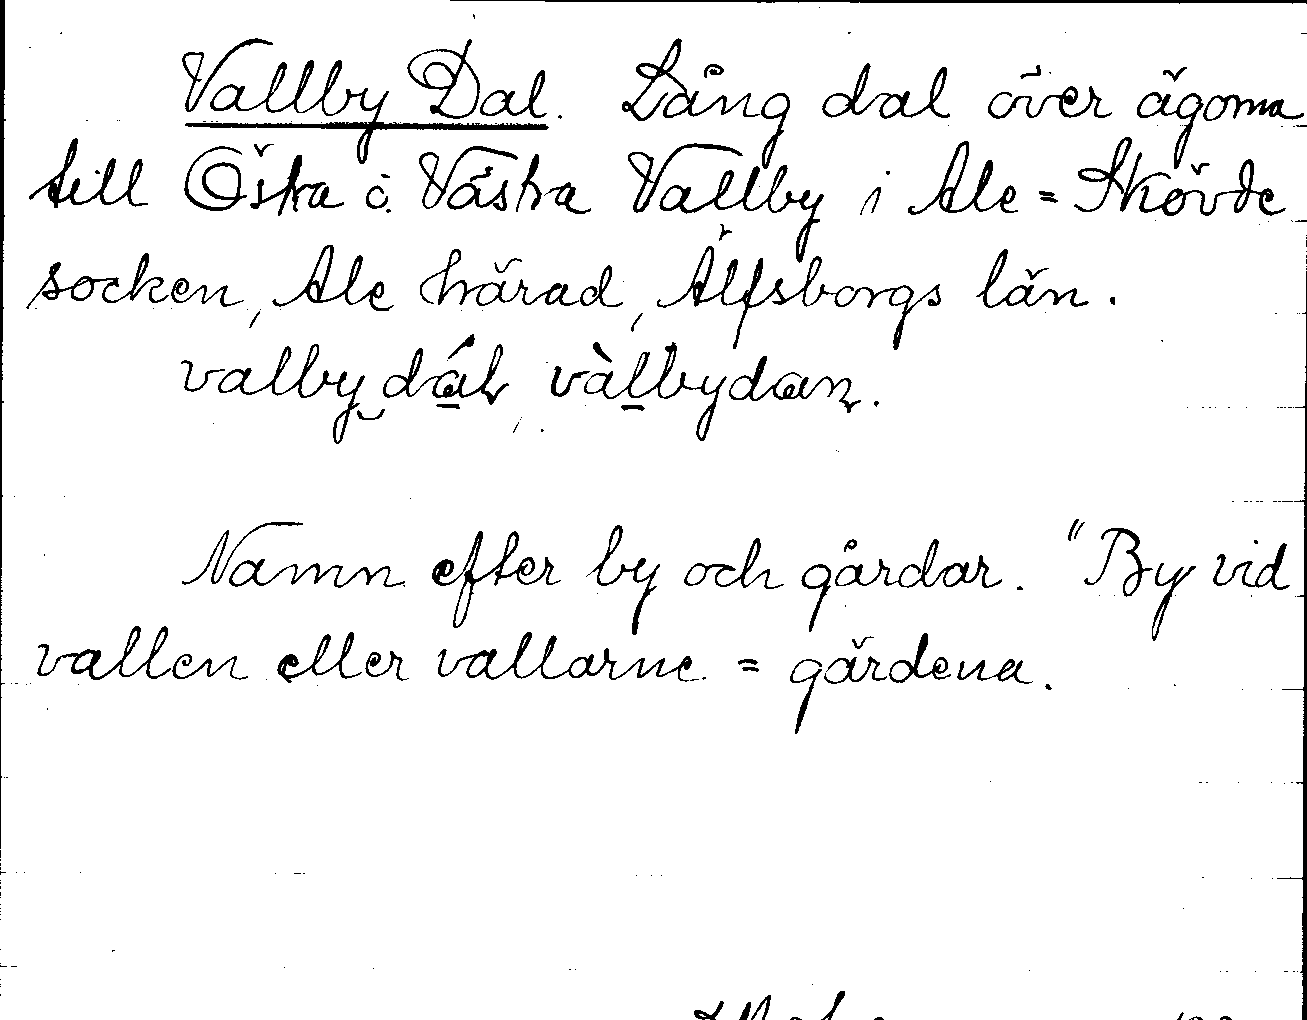 Vallby Dal. Lång dal över ägorna
till Östra o. Västra Vallby i Ale=Skövde
socken, Ale härad, Älfsborgs län.
valby dál, vàlbydan.
Namn efter by och gårdar. "By vid
vallen eller vallarne = gärdena.